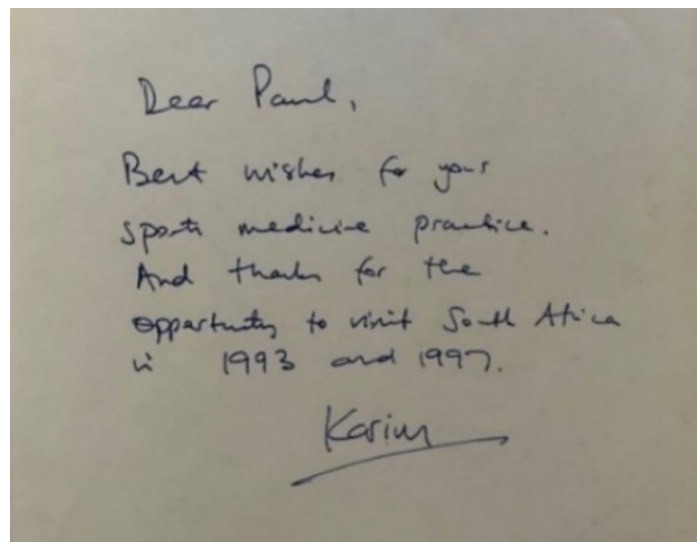 Dear Paul,
Best wishes for your
sports medicine practice.
And thanks for the
opportunity to visit South Africa
in 1993 and 1997.
Karim